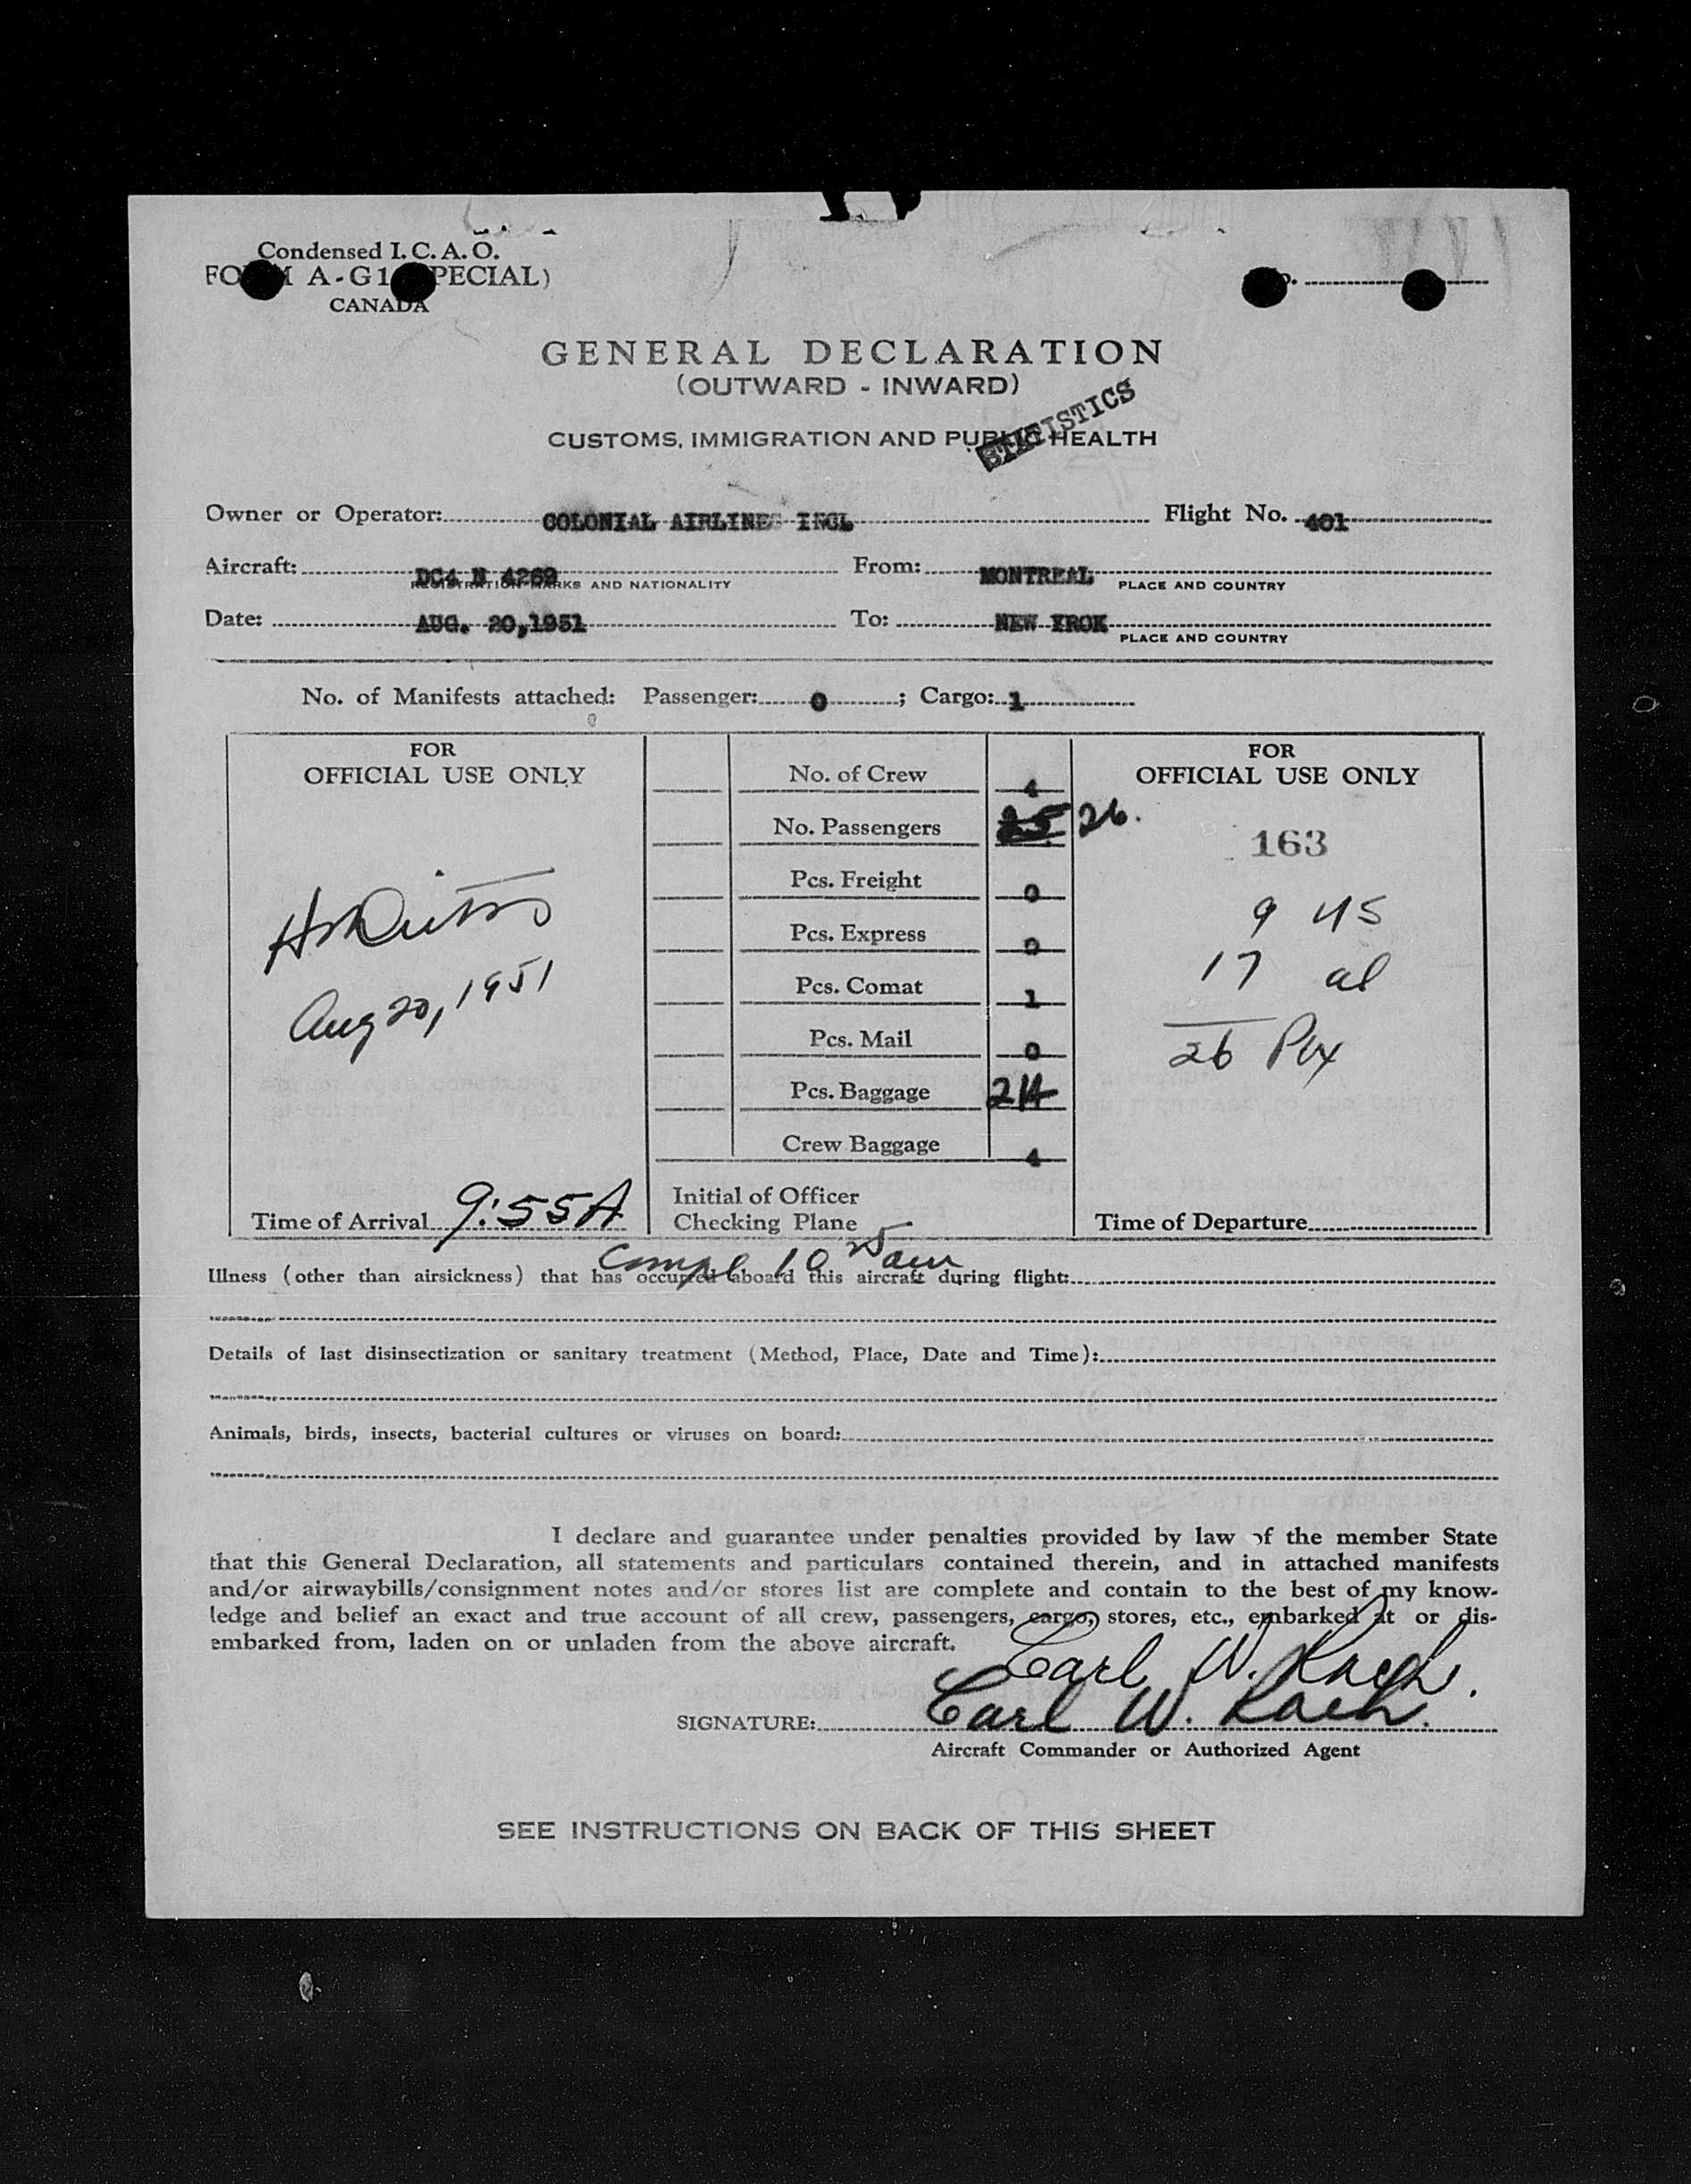 Condensed I. C. A. O.
FORM A-G1 (SPECIAL)
CANADA
GENERAL DECLARATION
(OUTWARD - INWARD)
STATISTICS
CUSTOMS, IMMIGRATION AND PUBLIC HEALTH
Owner or Operator: COLONIAL AIRLINES INCL Flight No. 401
Aircraft: DC4 N 4269 From: MONTREAL
REGISTRATION MARKS AND NATIONALITY PLACE AND COUNTRY
Date: AUG. 20,1951 To: NEW YROK
PLACE AND COUNTRY
No. of Manifests attached: Passenger: 0 ; Cargo: 1
FOR
OFFICIAL USE ONLY
Aug 20, 1951
Time of Arrival 9:55A
No. of Crew 4
No. Passengers 25 26.
Pcs. Freight 0
Pcs. Express 0
Pcs. Comat 1
Pcs. Mail 0
Pcs. Baggage 24
Crew Baggage 4
Initial of Officer
Checking Plane
FOR
OFFICIAL USE ONLY
163
9 US
17 al
26 Pax
Time of Departure
Compl 10 25 am
Illness (other than airsickness) that has occurred aboard this aircraft during flight:
Details of last disinsectization or sanitary treatment (Method, Place, Date and Time):
Animals, birds, insects, bacterial cultures or viruses on board:
I declare and guarantee under penalties provided by law of the member State
that this General Declaration, all statements and particulars contained therein, and in attached manifests
and/or airwaybills/consignment notes and/or stores list are complete and contain to the best of my know-
ledge and belief an exact and true account of all crew, passengers, cargo, stores, etc., embarked at or dis-
embarked from, laden on or unladen from the above aircraft.
Carl W. Koch.
SIGNATURE: Carl W. Koch.
Aircraft Commander or Authorized Agent
SEE INSTRUCTIONS ON BACK OF THIS SHEET